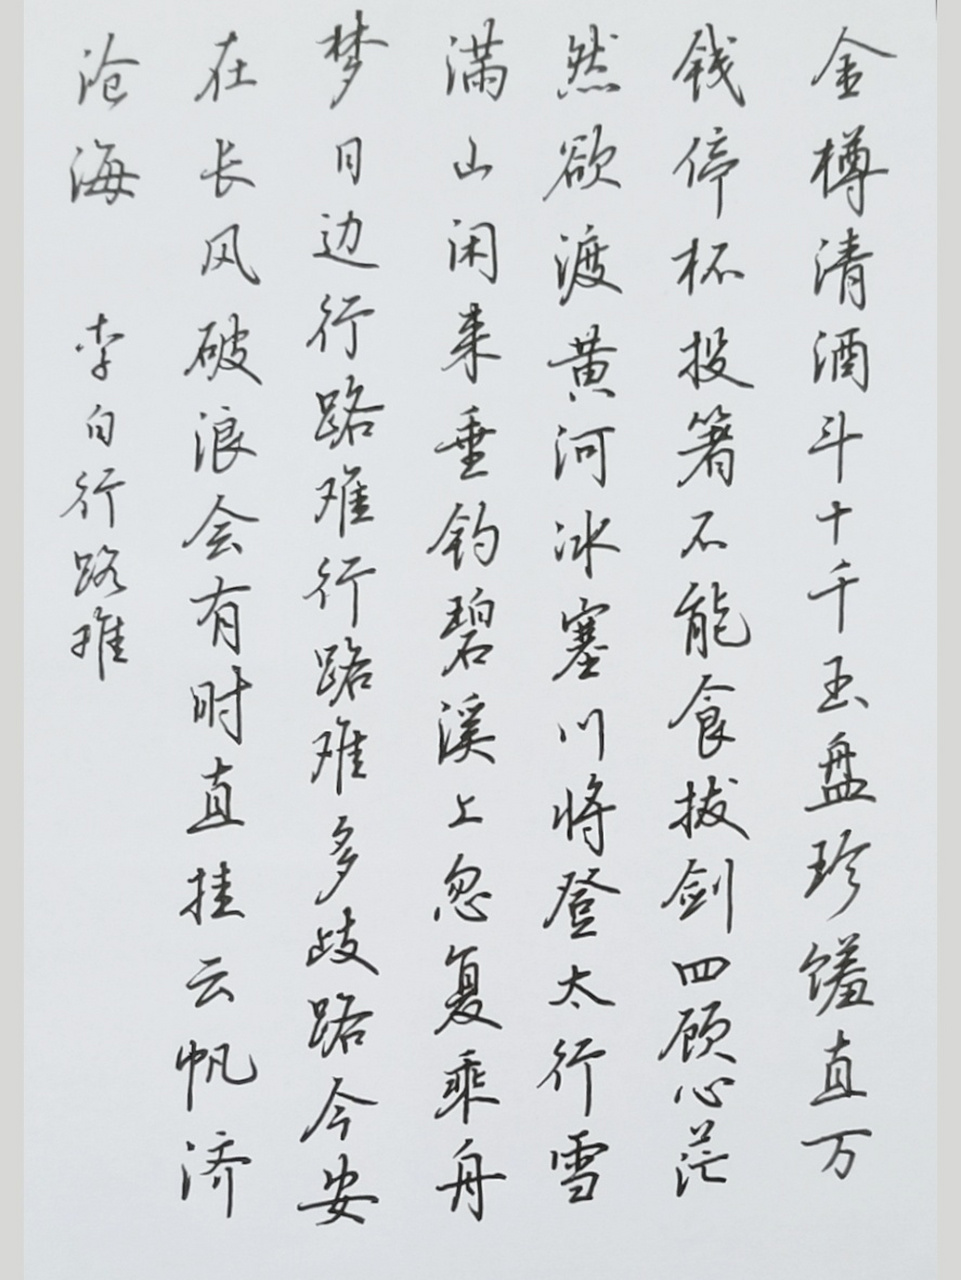 金樽清酒斗十千玉盘珍馐直万
钱停杯投箸不能食拔剑四顾心茫
然欲渡黄河冰塞川将登太行雪
满山闲来垂钓碧溪上忽复乘舟
梦日边行路难行路难多歧路今安
在长风破浪会有时直挂云帆济
沧海 李白行路难